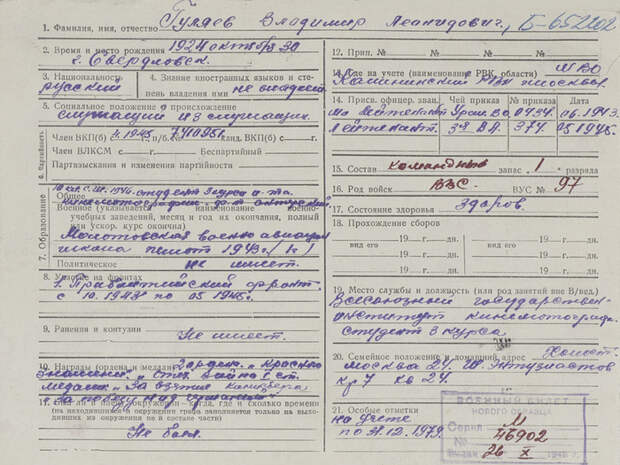 1. Фамилия, имя, отчество Гуляев Владимир Леонидович, Б-652202
2. Время и место рождения 1924 октябрь 30
г. Свердловск.
3. Национальность русский
4. Знание иностранных языков и степень владения ими не владеет
5. Социальное положение и происхождение
служащий из служащих.
6. Партийность
Член ВКП(б) с 1945 г., п/б № 7411951 Кандидат ВКП(б) с г.
Член ВЛКСМ с г. Беспартийный
Партвзыскания и изменения партийности
7. Образование
Общее
студент 3 курса
кинематографии
Военное (указывается наименование
учебных заведений, месяц и год их окончания, полный
или ускор. курс окончил)
Молотовская военно авиацион
школа пилот 1943 г.
Политическое не имеет.
8. Участие на фронтах
1. Прибалтийский фронт
с 10.1943 по 05.1945.
9. Ранения и контузии
Не имеет.
10. Награды (ордена и медали)
знамени. и Отеч. Война I ст.
медали "За взятие Кенигсберга
"За победу над Германией"
11. Был ли в плену, окружении — когда, где и сколько времени
(на находившихся в окружении графа заполняется только на выходивших из окружения не в составе части)
Не был.
12. Прип. №
МВО
13. Где на учете (наименование РВК, области)
Калининский РВК Москвы
14. Присв. офицер. зван. Чей приказ № приказа Дата
Мл. Лейтенант УралВО 0434. 06.1943.
Лейтенант 3й ВА. 374. 05.1945.
15. Состав командный запас 1 разряда
16. Род войск ВВС. ВУС № 97
17. Состояние здоровья здоров.
18. Прохождение сборов
вид его 19 г. дн. вид его 19 г. дн.
19 г. дн. 19 г. дн.
19 г. дн. 19 г. дн.
19. Место службы и должность (или род занятий вне В/вед.)
Всесоюзный государствен
институт кинематографии
студент 3 курса
20. Семейное положение и домашний адрес Холост.
Москва 24. Ш. Энтузиастов
кв 24.
21. Особые отметки
на учете
по 31.12.1979.
ВОЕННЫЙ БИЛЕТ
НОВОГО ОБРАЗЦА
Серия М
№ 46902
Выдан 26 X 1948 г.